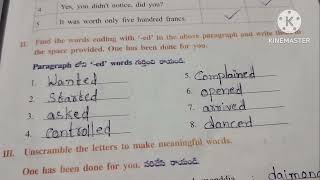 4. Yes, you didn't notice, did you?
5. It was worth only five hundred francs.
KINEMASTER
II. Find the words ending with '-ed' in the above paragraph and write them in
the space provided. One has been done for you.
Paragraph లోని '-ed' words గుర్తించి రాయండి.
1. Wanted
2. Started
3. asked
4. controlled
5. Complained
6. opened
7. arrived
8. danced
III. Unscramble the letters to make meaningful words.
One has been done for you. సరిచేసి రాయండి.